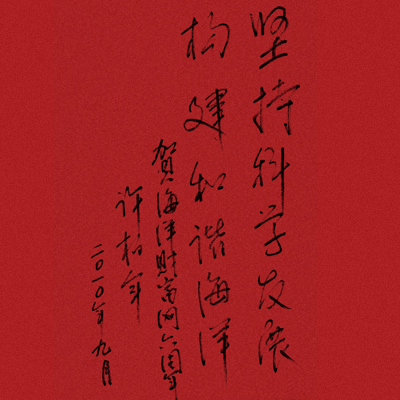 坚持科学发展
构建和谐海洋
贺海洋财富网六周年
许柏年
二〇一〇年九月